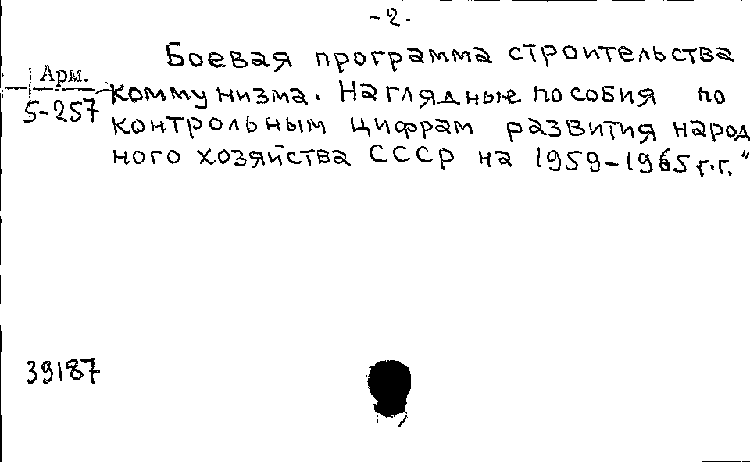 -2-
Боевая программа строительства
Арм.
коммунизма. Наглядные пособия по
5-257
контрольным цифрам развития народ
ного хозяйства СССР на 1959-1965 г.г."
39187